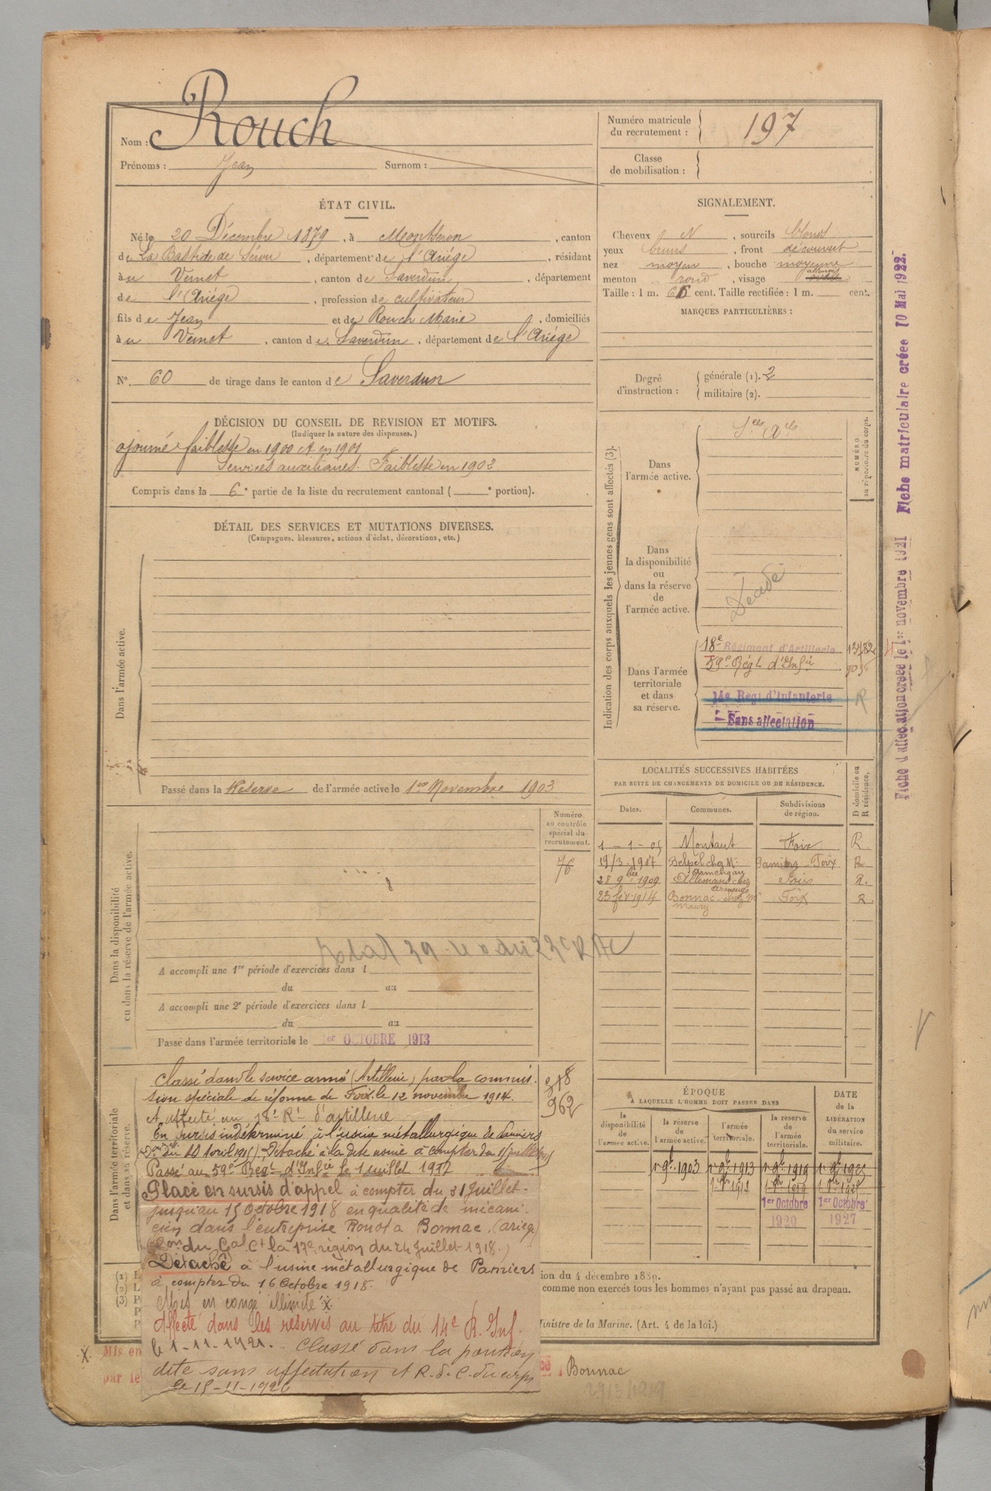 Nom : Rouch
Prénoms : Jean Surnom :
Numéro matricule du recrutement : 197
Classe de mobilisation :
ÉTAT CIVIL.
Né le 20 Décembre 1879, à Montseron, canton
de La Bastide de Sérou, département de l'Ariège, résidant
à u Vernet, canton de Saverdun, département
de l'Ariège, profession de cultivateur
fils de Jean et de Rouch Marie, domiciliés
à u Vernet, canton de Saverdun, département de l'Ariège
N° 60 de tirage dans le canton de Saverdun
SIGNALEMENT.
Cheveux N, sourcils blond
yeux bruns, front découvert
nez moyen, bouche moyenne
menton rond, visage
Taille : 1 m. 66 cent. Taille rectifiée : 1 m. cent.
MARQUES PARTICULIÈRES :
Degré d'instruction : générale (1). 2
militaire (2).
DÉCISION DU CONSEIL DE REVISION ET MOTIFS.
(Indiquer la nature des dispenses.)
ajourné faiblesse en 1900 et en 1901
Services auxiliaires. Faiblesse en 1903
Compris dans la 6e partie de la liste du recrutement cantonal ( e portion).
DÉTAIL DES SERVICES ET MUTATIONS DIVERSES.
(Campagnes, blessures, actions d'éclat, décorations, etc.)
Dans l'armée active.
Passé dans la Réserve de l'armée active le 1er Novembre 1903
Indication des corps auxquels les jeunes gens sont affectés (3).
NUMÉRO au répertoire du corps.
Dans l'armée active.
Dans la disponibilité ou dans la réserve de l'armée active.
Décédé
Dans l'armée territoriale et dans sa réserve.
18e Régiment d'Artillerie
59e Régt d'Infie
14e Regt d'Infanterie
Sans affectation
R
Fiche matriculaire créée 10 Mai 1922.
LOCALITÉS SUCCESSIVES HABITÉES
PAR SUITE DE CHANGEMENTS DE DOMICILE OU DE RÉSIDENCE.
Dates. Communes. Subdivisions de région. D domicile ou R résidence.
1-1-05 Montaut Foix R.
19/3-1907 Pamiers Foix R.
28 9bre 1909 Foix R.
23 fév 1914 Bonnac Foix R
Dans la disponibilité ou dans la réserve de l'armée active.
Numéro au contrôle spécial du recrutement.
76
A accompli une 1re période d'exercices dans l
du au
A accompli une 2e période d'exercices dans l
du au
Passé dans l'armée territoriale le 1er OCTOBRE 1913
Dans l'armée territoriale et dans sa réserve.
Classé dans le service armé (Artillerie) par la commis-
sion spéciale de réforme de Foix le 12 novembre 1914.
Affecté au 18e Rt d'artillerie
En sursis indéterminé à l'usine métallurgique de Pamiers
détaché à la dite usine à compter du
Passé au 59e Régt d'Infie le 1 juillet 1917
Placé en sursis d'appel à compter du 31 Juillet
jusqu'au 15 Octobre 1918 en qualité de mécani-
cien dans l'entreprise à Bonnac (Ariège
du Gal Ct la 17e région du 24 Juillet 1918.)
Détaché à l'usine métallurgique de Pamiers
à compter du 16 Octobre 1918.
en congé illimité x
Affecté dans les réserves au titre du 14e R. Inf.
le 1-11-1921. Classé dans la position
dite sans affectation et R. d. C. du corps
le 15-11-1926
962
ÉPOQUE
A LAQUELLE L'HOMME DOIT PASSER DANS
DATE de la LIBÉRATION du service militaire.
la disponibilité de l'armée active. la réserve de l'armée active. l'armée territoriale. la réserve de l'armée territoriale.
1er 9bre 1903
1er Octobre 1920
1er Octobre 1927
(1)
(2)
(3)
ion du 4 décembre 1889.
comme non exercés tous les hommes n'ayant pas passé au drapeau.
Ministre de la Marine. (Art. 4 de la loi.)
x Mis en
par le
Bonnac